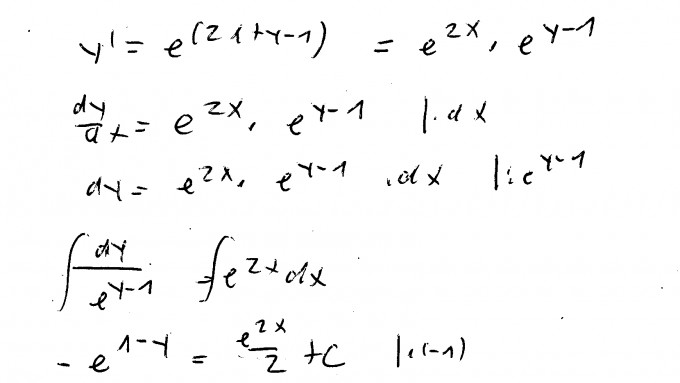 y' = e^(2x+y-1) = e^2x · e^y-1
dy/dx = e^2x · e^y-1 |· dx
dy = e^2x · e^y-1 · dx |: e^y-1
∫ dy/e^y-1 = ∫ e^2x dx
- e^1-y = e^2x/2 + C |·(-1)